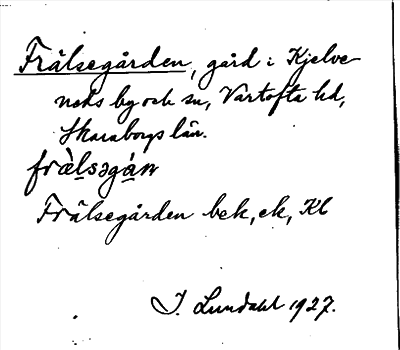 Frälsegården, gård i Kjelve-
neds by och sn, Vartofta hd,
Skaraborgs län.
fràlsəgán
Frälsegården bek, ek, Kl
I. Lundahl 1927.